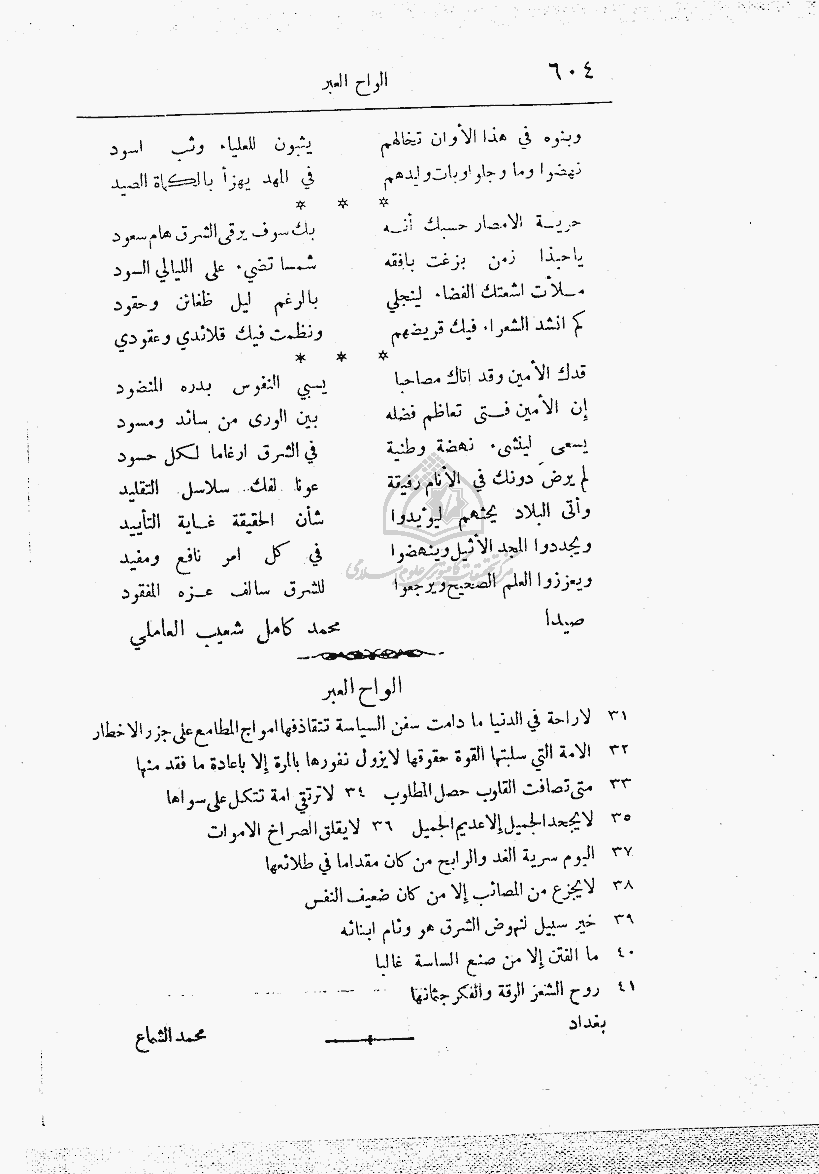 ٦٠٤
الواح العبر
وبنوه في هذا الأوان تخالهم يثبون للعلياء وثب اسود
نهضوا وما وجلوا وبات وليدهم في المهد يهزأ بالكماة الصيد
* * *
حرية الامصار حسبك أنه بك سوف يرقى الشرق هام سعود
ياحبذا زمن بزغت بافقه شمسا تضيء على الليالي السود
ملأت اشعتك الفضاء لينجلي بالرغم ليل ظغائن وحقود
كم انشد الشعراء فيك قريضهم ونظمت فيك قلائدي وعقودي
* * *
قدك الأمين وقد اتاك مصاحبا يسبي النفوس بدره المنضود
إن الأمين فتى تعاظم فضله بين الورى من سائد ومسود
يسعى لينشىء نهضة وطنية في الشرق ارغاما لكل حسود
لم يرض دونك في الأنام رفيقة عونا لفك سلاسل التقليد
وأتى البلاد يحثهم ليؤيدوا شأن الحقيقة غاية التأييد
ويجددوا المجد الأثيل وينهضوا في كل امر نافع ومفيد
ويعززوا العلم الصحيح ويرجعوا للشرق سالف عزه المفقود
صيدا محمد كامل شعيب العاملي
الواح العبر
٣١ لاراحة في الدنيا ما دامت سفن السياسة تتقاذفها امواج المطامع على جزر الاخطار
٣٢ الامة التي سلبتها القوة حقوقها لايزول نفورها بالمرة إلا باعادة ما فقد منها
٣٣ متى تصافت القلوب حصل المطلوب ٣٤ لاترتقي امة تتكل على سواها
٣٥ لايجحد الجميل إلا عديم الجميل ٣٦ لايقلق الصراخ الاموات
٣٧ اليوم سرية الغد والرابح من كان مقداما في طلائعها
٣٨ لايجزع من المصائب إلا من كان ضعيف النفس
٣٩ خير سبيل لنهوض الشرق هو وئام ابنائه
٤٠ ما الفتن إلا من صنع الساسة غالبا
٤١ روح الشعر الرقة والفكر جثمانها
بغداد محمد الشماع